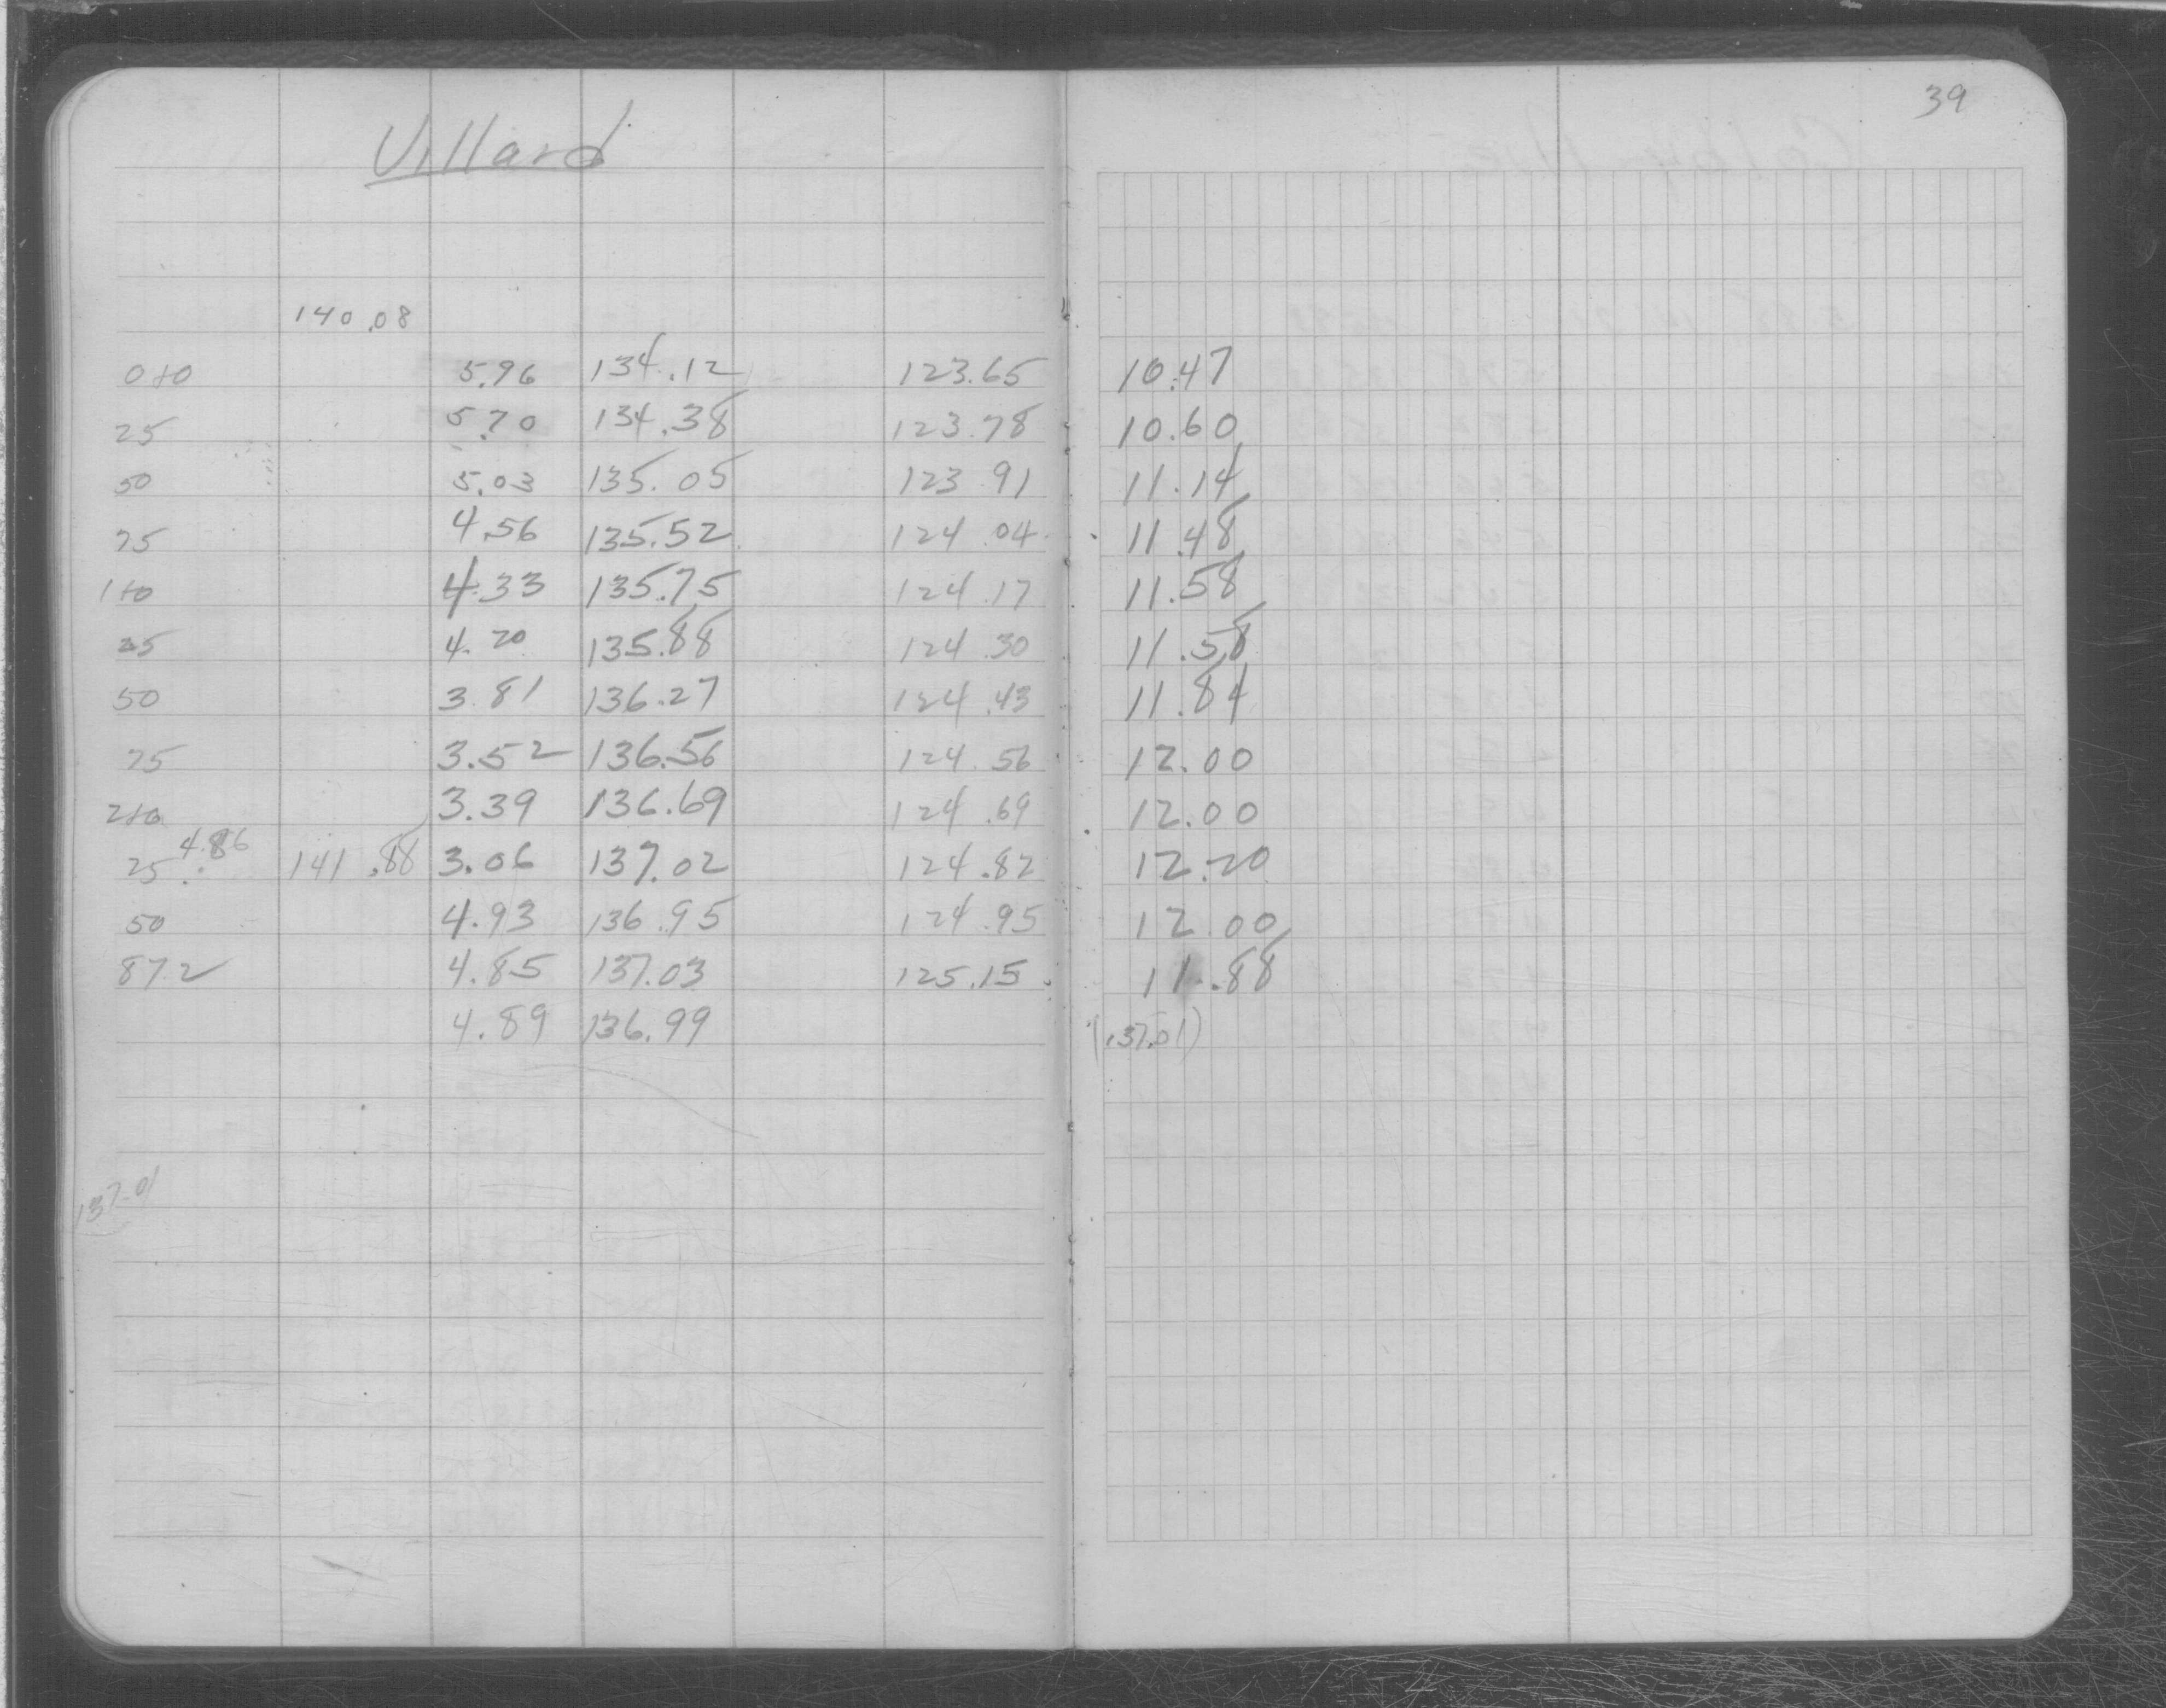 39
Villard
140.08
0+0 5.96 134.12 123.65 10.47
25 5.70 134.38 123.78 10.60
50 5.03 135.05 123.91 11.14
75 4.56 135.52 124.04 11.48
1+0 4.33 135.75 124.17 11.58
25 4.20 135.88 124.30 11.58
50 3.81 136.27 124.43 11.84
75 3.52 136.56 124.56 12.00
2+0 3.39 136.69 124.69 12.00
25 4.86 141.88 3.06 137.02 124.82 12.20
50 4.93 136.95 124.95 12.00
87.2 4.85 137.03 125.15 11.88
4.89 136.99 (137.01)
137.01